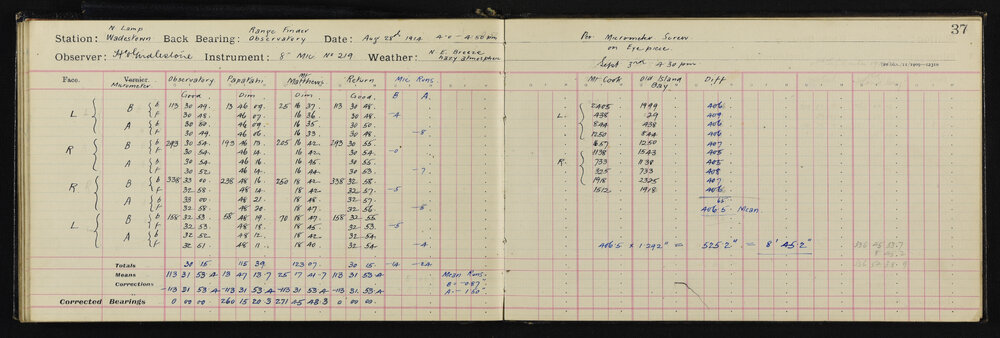 N Lamp Range Finder
Station: Wadestown Back Bearing: Observatory Date: Aug 25th 1914 4-0 - 4.50 pm
Observer: Instrument: 8" Mic No 219 Weather: N.E. Breeze hazy atmosphere
Face. Vernier. Micrometer Observatory Papatahi Mt Matthews Return Mic Runs.
Good Dim Dim Good. B A.
L B b 113 30 49. 13 46 09. 25 16 37. 113 30 48.
f 30 48. 46 07. 16 36. 30 48. -4
A b 30 50. 46 09. 16 35. 30 50.
f 30 49. 46 06. 16 33. 30 48. -8
R B b 293 30 54. 193 46 13. 205 16 42. 293 30 55.
f 30 54. 46 14. 16 42. 30 54. -0
A b 30 54. 46 16. 16 45. 30 55.
f 30 52. 46 14. 16 44. 30 53. -7
R B b 338 33 00. 238 48 16. 250 18 42. 338 32 58.
f 32 58. 48 14. 18 42. 32 57. -5
A b 33 00. 48 21. 18 48. 32 57.
f 32 58. 48 20. 18 47. 32 56. -5
L B b 158 32 53. 58 48 19. 70 18 47. 158 32 55.
f 32 53. 48 18. 18 45. 32 53. -5
A b 32 52. 48 12. 18 42. 32 54.
f 32 51. 48 11. 18 40. 32 54. -4
Totals 30 15. 115 39. 123 07. 30 15. -14 -24
Means 113 31 53.4 13 47 13.7 25 17 41.7 113 31 53.4 Mean Runs.
Corrections -113 31 53.4 -113 31 53.4 -113 31 53.4 -113 31 53.4 B = -0.87 A = -1.50
Corrected Bearings 0 00 00. 260 15 20.3 271 45 48.3 0 00 00.
37
Per Micrometer Screw.
on Eyepiece
Sept 3rd 4.30 pm
Mt Cook Old Island Bay Diff
L. 2405 1999 406
438 29 409
844 438 406
1250 844 406
1657 1250 407
R. 1138 1543 405
733 1138 405
325 733 408
1918 2325 407
1512 1918 406
65
406.5 Mean.
406.5 × 1.292" = 525.2" = 8' 45.2"